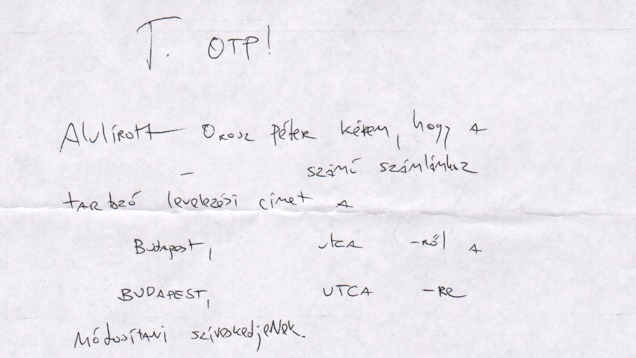 T. OTP!
Alulírott Orosz Péter kérem, hogy a
– számú számlámhoz
tartozó levelezési címet a
Budapest, utca -ről a
BUDAPEST, UTCA -RE
módosítani szíveskedjenek.